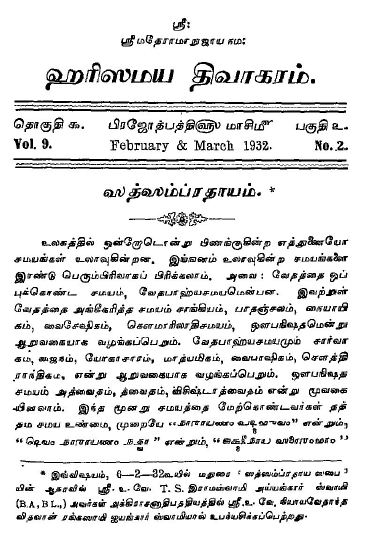 ஸ்ரீ:
ஸ்ரீமதேராமாநுஜாய நம:
ஹரிஸமய திவாகரம்.
தொகுதி ௯. பிரஜோத்பத்தி௵ மாசி௴ பகுதி ௨.
Vol. 9. February & March 1932. No. 2.
ஸத்ஸம்ப்ரதாயம். *
உலகத்தில் ஒன்றோடொன்று பிணங்குகின்ற எத்துணையோ
சமயங்கள் உலாவுகின்றன. இங்ஙனம் உலாவுகின்ற சமயங்களை
இரண்டு பெரும்பிரிவாகப் பிரிக்கலாம். அவை : வேதத்தை ஒப்
புக்கொண்ட சமயம், வேதபாஹ்யசமயமென்பன. இவற்றுள்
வேதத்தை அங்கீகரித்த சமயம் சாங்கியம், பாதஞ்சலம், கையாயி
கம், வைசேஷிகம், கௌமாரிலாதிசமயம், ஔபநிஷதமென்று
ஆறுவகையாக வழங்கப்பெறும். வேதபாஹ்யசமயமும் சார்வா
கம், ஜைநம், யோகாசாரம், மாத்யமிகம், வைபாஷிகம், சௌத்தி
ராந்திகம், என்று ஆறுவகையாக வழங்கப்பெறும். ஔபநிஷத
சமயம் அத்வைதம், த்வைதம், விசிஷ்டாத்வைதம் என்று மூவகை
யினவாம். இந்த மூன்று சமயத்தை மேற்கொண்டவர்கள் தத்
தம் சமய உண்மை, முறையே என்றும்,
என்றும்,
* இவ்விஷயம், 6—2—32வில் மதுரை "ஸத்ஸம்ப்ரதாய ஸபை"
யின் ஆதரவில் ஸ்ரீ.உ.வே. T. S. இராமஸ்வாமி அய்யங்கார் ஸ்வாமி
(B.A., B.L.,) அவர்கள் அக்கிராசனாதிபத்தியத்தில் ஸ்ரீ.உ.வே. நியாயவேதாந்த
வித்வான் ரங்கஸாமி ஐயங்கார் ஸ்வாமியால் உபந்யஸிக்கப்பெற்றது.